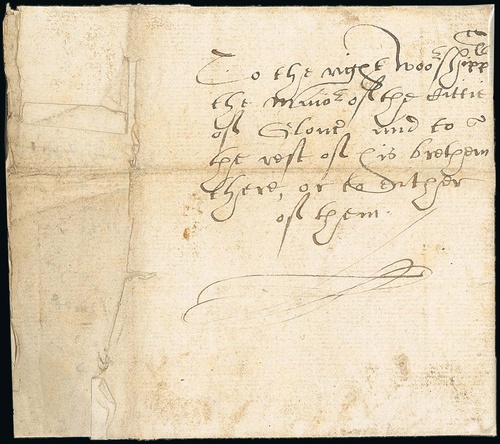 To the right woorshipp
the maior of the Cittie
of Glouc and to
the rest of his brethern
there, or to euther
of them.